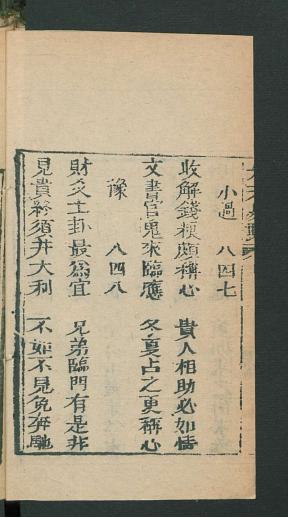 小過　八四七
收解錢粮頗稱心　貴人相助必如情
文書官鬼來臨應　冬夏占之更稱心
豫　八四八
財爻上卦最為宜　兄弟臨門有是非
見貴終須并大利　不如不見免奔馳